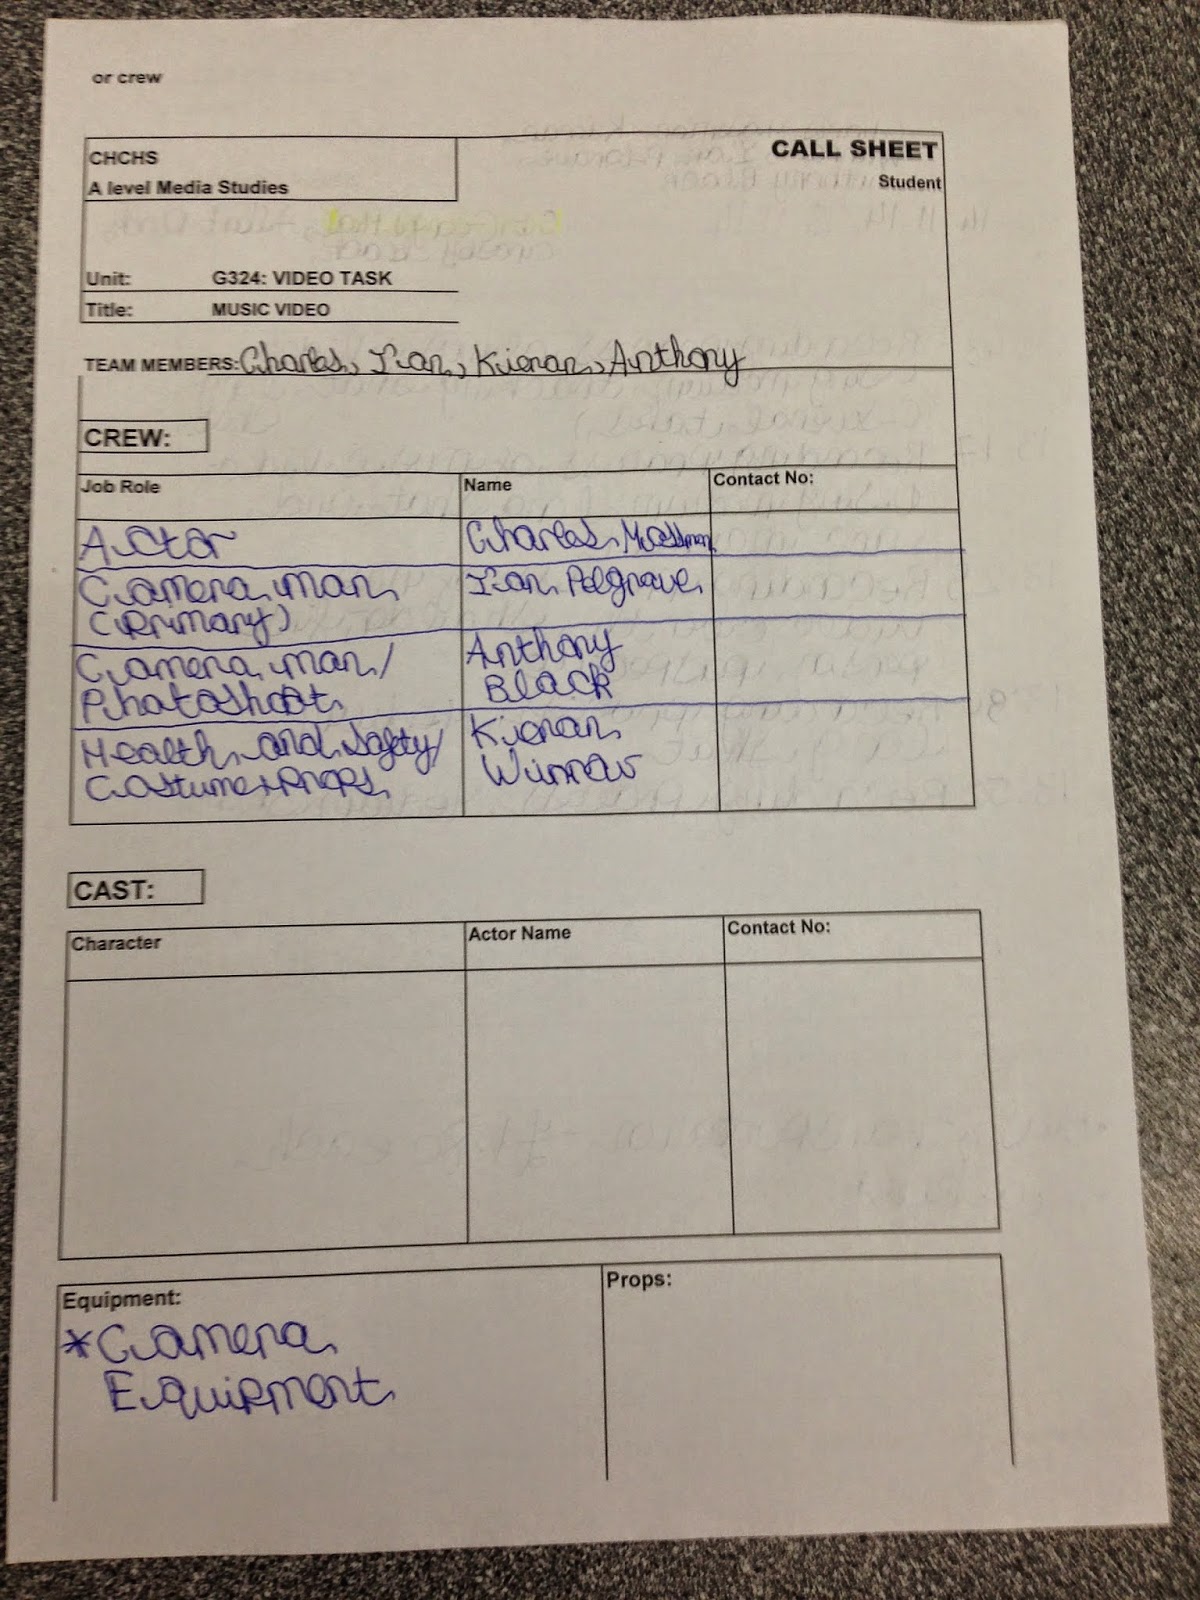 or crew
CHCHS
CALL SHEET
A level Media Studies
Student
Unit: G324: VIDEO TASK
Title: MUSIC VIDEO
TEAM MEMBERS: Charles, Ian, Kieran, Anthony
CREW:
Job Role Name Contact No:
Actor Charles Mossman
Camera man Ian Polgrave
(Primary)
Camera man/ Anthony
Photoshoot Black
Health and Safety/ Kieran
Costume+Props Winrow
CAST:
Character Actor Name Contact No:
Equipment: Props:
*Camera
Equipment